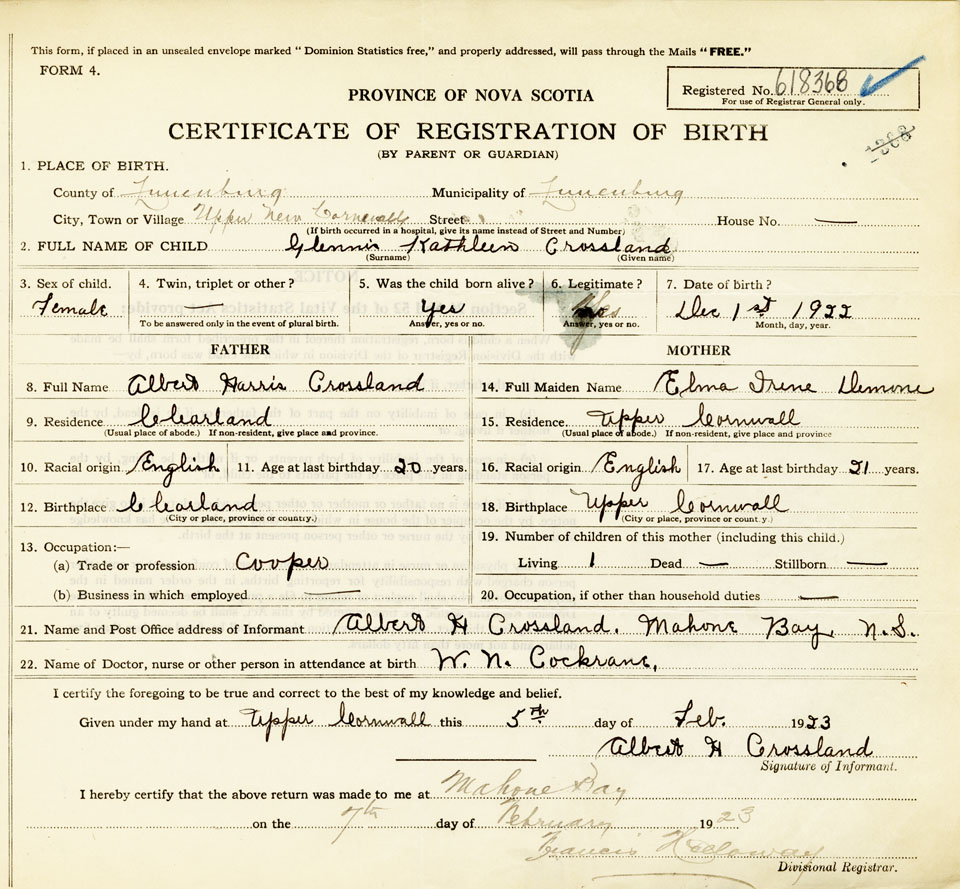 This form, if placed in an unsealed envelope marked “ Dominion Statistics free,” and properly addressed, will pass through the Mails “FREE.”
FORM 4.
Registered No. 618368
For use of Registrar General only.
PROVINCE OF NOVA SCOTIA
CERTIFICATE OF REGISTRATION OF BIRTH
(BY PARENT OR GUARDIAN)
1. PLACE OF BIRTH.
County of Lunenburg Municipality of Lunenburg
City, Town or Village Upper New Cornwall Street House No. —
(If birth occurred in a hospital, give its name instead of Street and Number)
2. FULL NAME OF CHILD Glennis Kathleen Crossland
(Surname) (Given name)
3. Sex of child. 4. Twin, triplet or other? 5. Was the child born alive? 6. Legitimate? 7. Date of birth?
Female — Yes Yes Dec 1st 1922
To be answered only in the event of plural birth. Answer, yes or no. Answer, yes or no. Month, day, year.
FATHER MOTHER
8. Full Name Albert Harris Crossland 14. Full Maiden Name Elma Irene Demone
9. Residence Clearland 15. Residence. Upper Cornwall
(Usual place of abode.) If non-resident, give place and province. (Usual place of abode.) If non-resident, give place and province
10. Racial origin English 11. Age at last birthday 20 years. 16. Racial origin English 17. Age at last birthday 21 years.
12. Birthplace Clearland 18. Birthplace Upper Cornwall
(City or place, province or country.) (City or place, province or country.)
13. Occupation:— 19. Number of children of this mother (including this child.)
(a) Trade or profession Cooper Living 1 Dead — Stillborn —
(b) Business in which employed — 20. Occupation, if other than household duties —
21. Name and Post Office address of Informant Albert H Crossland. Mahone Bay, N.S.
22. Name of Doctor, nurse or other person in attendance at birth W. N. Cockrane,
I certify the foregoing to be true and correct to the best of my knowledge and belief.
Given under my hand at Upper Cornwall this 5th day of Feb. 1923
Albert H Crossland
Signature of Informant.
I hereby certify that the above return was made to me at Mahone Bay
on the 7th day of February 1923
Francis Holloway
Divisional Registrar.